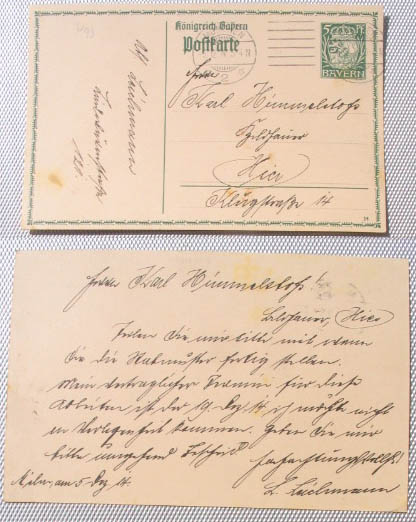 Königreich Bayern
Postkarte
5
BAYERN
Herrn
Karl Himmelstoß
Bildhauer
Hier
Klugstraße 14
Herrn Karl Himmelstoß
Bildhauer, Hier
Teilen Sie mir bitte mit wann
Sie die Modmuster fertig stellen.
Mein vertraglicher Termin für diese
Arbeiten ist der 19. Dez 14 ich möchte nicht
in Verlegenheit kommen. Geben Sie mir
bitte umgehend Bescheid
Hochachtungsvollst
Mchn, am 5 Dez 14.